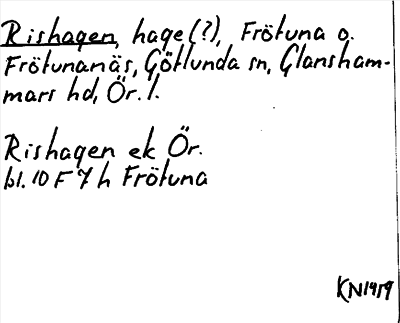 Rishagen, hage (?), Frötuna o.
Frötunanäs, Götlunda sn, Glansham-
mars hd, Ör. l.
Rishagen ek Ör.
bl. 10 F 7 h Frötuna
KN1919